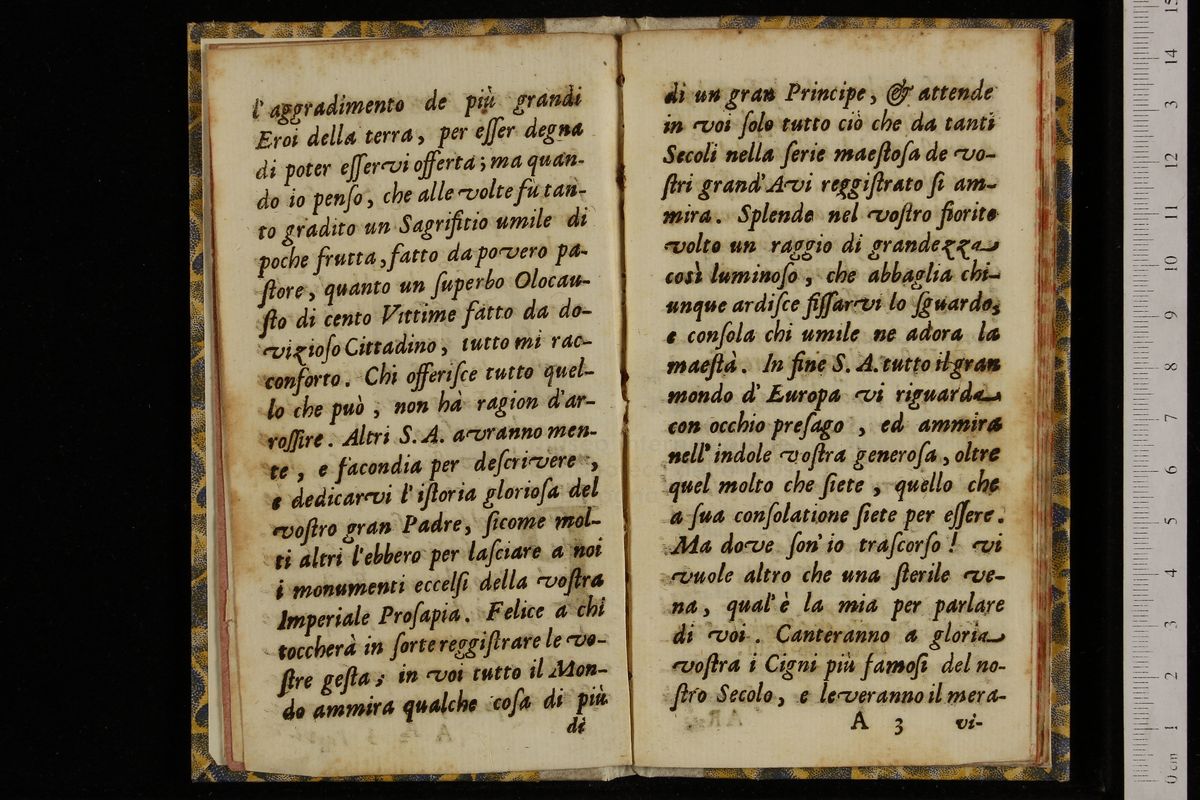 l'aggradimento de più grandi
Eroi della terra, per eſſer degna
di poter eſſervi offerta; ma quan-
do io penſo, che alle volte fù tan-
to gradito un Sagrifitio umile di
poche frutta, fatto da povero pa-
ſtore, quanto un ſuperbo Olocau-
ſto di cento Vittime fatto da do-
vizioſo Cittadino, tutto mi rac-
conforto. Chi offeriſce tutto quel-
lo che può, non hà ragion d'ar-
roſſire. Altri S. A. avranno men-
te, e facondia per deſcrivere,
e dedicarvi l'iſtoria glorioſa del
voſtro gran Padre, ſicome mol-
ti altri l'ebbero per laſciare a noi
i monumenti eccelſi della voſtra
Imperiale Proſapia. Felice a chi
toccherà in ſorte reggiſtrare le vo-
ſtre geſta; in voi tutto il Mon-
do ammira qualche coſa di più
di
di un gran Principe, & attende
in voi ſolo tutto ciò che da tanti
Secoli nella ſerie maeſtoſa de vo-
ſtri grand'Avi reggiſtrato ſi am-
mira. Splende nel voſtro fiorito
volto un raggio di grandezza
così luminoſo, che abbaglia chi-
unque ardiſce fiſſarvi lo ſguardo,
e conſola chi umile ne adora la
maeſtà. In fine S. A. tutto il gran
mondo d'Europa vi riguarda
con occhio preſago, ed ammira
nell'indole voſtra generoſa, oltre
quel molto che ſiete, quello che
a ſua conſolatione ſiete per eſſere.
Ma dove ſon'io traſcorſo! vi
vuole altro che una ſterile ve-
na, qual'è la mia per parlare
di voi. Canteranno a gloria
voſtra i Cigni più famoſi del no-
ſtro Secolo, e leveranno il mera-
A 3 vi-
15
14
13
12
11
10
9
8
7
6
5
4
3
2
1
0 cm